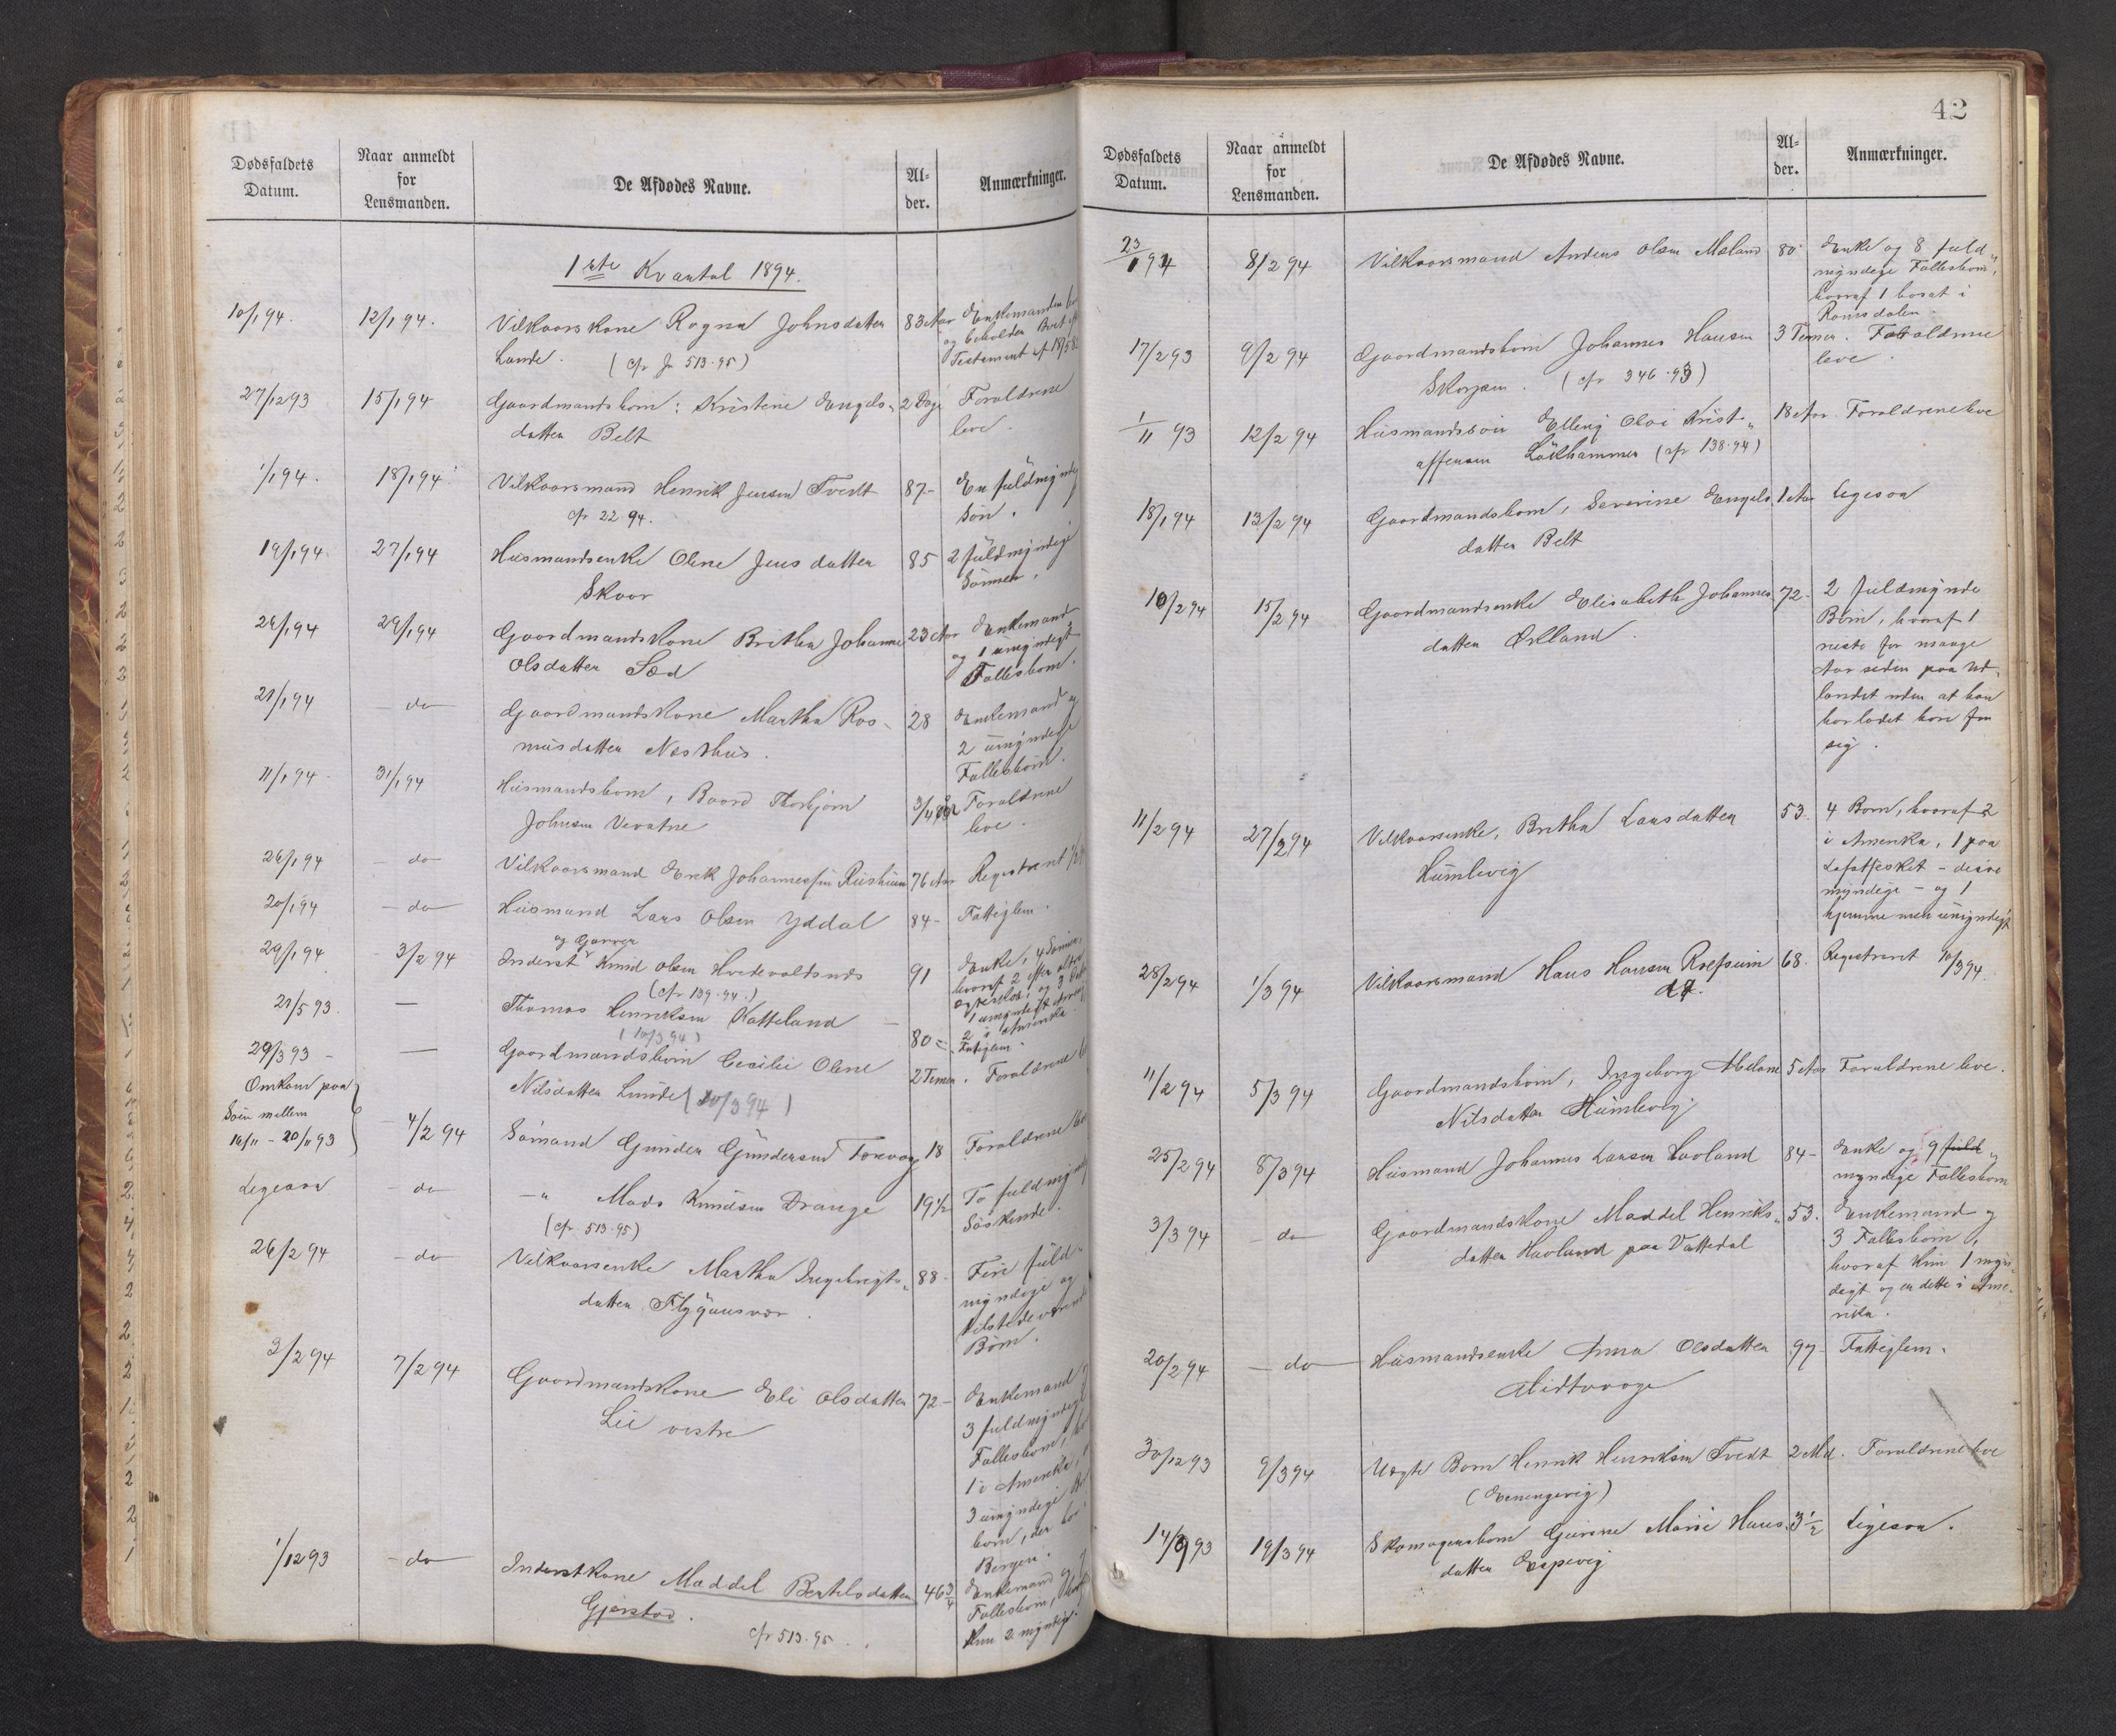 Dødsfaldets Datum.
Naar anmeldt for Lensmanden.
De Afdødes Navne.
Al-der.
Anmærkninger.
1ste Kvartal 1894.
10/1 94. 12/1 94. Vilkaarskone Ragna Johnsdatter 83 Aar Enkemanden
Lunde. (cfr J 513.95) og beholder Boet
Testament af 18/5 82
27/12 93 15/1 94 Gaardmandsbarn: Kristine Engels- 2 Dage Forældrene
datter Belt leve.
1/1 94. 18/1 94 Vilkaarsmand Henrik Jensen Tvedt 87- En fuldmyndig
cfr 22.94. Søn.
19/1 94. 27/1 94 Husmandsenke Olene Jensdatter 85 2 fuldmyndige
Skaar Sønner.
24/1 94 29/1 94 Gaardmandskone Britha Johanne 23 Aar Enkemand
Olsdatter Sæd og 1 umyndigt
Fællesbarn.
21/1 94 do Gaardmandskone Martha Ras- 28 Enkemand og
musdatter Næsthus. 2 umyndige
Fællesbørn.
11/1 94 31/1 94 Husmandsbarn, Baard Thorbjørn 3/4 Aar Forældrene
Johnsen Vevatne leve.
26/1 94 do Vilkaarsmand Erik Johannessen Røshein 76 Aar Registreret
20/1 94 do Husmand Lars Olsen Yddal 84- Fattiglem.
og Garver
29/1 94 3/2 94 Inderst Knud Olsen Hvedevoldsnes 91 Enke, 4 Sønner,
(cfr 139.94.) hvoraf 2 efter ældre
Ægteskab, og 3
1 umyndigt
2 i Amerika
21/5 93. — Thomas Henriksen Katteland — 80 = Fattiglem.
(10/3 94)
29/3 93 - — Gaardmandsbarn Cecilie Oline 2 Timer. Forældrene
Nilsdatter Lunde (20/3 94)
Omkom paa
Søen mellem
16/11 - 20/11 93 4/2 94 Sømand Gunder Gundersen Torevaag 18 Forældrene
Ligesaa do —" Mads Knudsen Drange 19 1/2 To fuldmyndige
(cfr. 513.95) Søskende.
26/2 94 do Vilkaarsenke Martha Ingebrigts- 88- Fire fuld-
datter Flygansvær. myndige og
tilstedeværende
Børn.
3/2 94 7/2 94 Gaardmandskone Eli Olsdatter 72- Enkemand
Lie vestre 3 fuldmyndige
Fællesbørn,
1 i Amerika,
3 umyndige
børn, der bor
Bergen.
1/12 93 do Inderstkone Maddel Bertelsdatter 46 3/4 Enkemand og
Gjerstad. Fællesbørn,
cfr 513.95. kun 2 myndige.
42
Dødsfaldets Datum.
Naar anmeldt for Lensmanden.
De Afdødes Navne.
Al-der.
Anmærkninger.
23/1 94 8/2 94 Vilkaarsmand Anders Olsen Meland 80 Enke og 8 fuld-
myndige Fællesbørn,
hvoraf 1 bosat i
Romsdalen.
17/2 93 9/2 94 Gaardmandsbarn Johannes Hansen 3 Timer. Forældrene
Skorpen. (cfr 346.93) leve.
1/11 93 12/2 94 Husmandssøn Elling Olai Krist- 18 Aar. Forældrene leve
offersen Løkhammer (cfr 138.94)
18/1 94 13/2 94 Gaardmandsbarn, Severine Engels 1 Aar Ligesaa
datter Belt
10/2 94 15/2 94 Gaardmandsenke Elisabeth Johannes 72- 2 fuldmyndige
datter Økland. Børn, hvoraf 1
reiste for mange
Aar siden paa Ud-
landet uden at han
har ladet høre fra
sig.
11/2 94 27/2 94 Vilkaarsenke, Britha Larsdatter 53. 4 Børn, hvoraf 2
Humlevig i Amerika, 1 paa
Lofotfisket - disse
myndige - og 1
hjemme men umyndigt
28/2 94 1/3 94 Vilkaarsmand Hans Hansen Rolfsum 68. Registreret 10/3 94.
11/2 94 5/3 94 Gaardmandsbarn, Ingeborg Melone 5 Aar Forældrene leve.
Nilsdatter Humlevig
25/2 94 8/3 94 Husmand Johannes Larsen Havland 84- Enke og 9 fuld-
myndige Fællesbørn
3/3 94 do Gaardmandskone Maddel Henriks- 53. Enkemand og
datter Havland paa Vattedal 3 Fællesbørn,
hvoraf kun 1 myn-
digt og er dette i Ame-
rika.
20/2 94 do Husmandsenke Anna Olsdatter 97- Fattiglem.
Midtvaage
30/12 93 9/3 94 Uægte Barn Henrik Henriksen Tvedt 2 Md. Forældrene leve
(Eenengevig)
14/9 93 19/3 94 Skomagersbarn Gurine Marie Hans. 3 1/2 Ligesaa.
datter Espevig